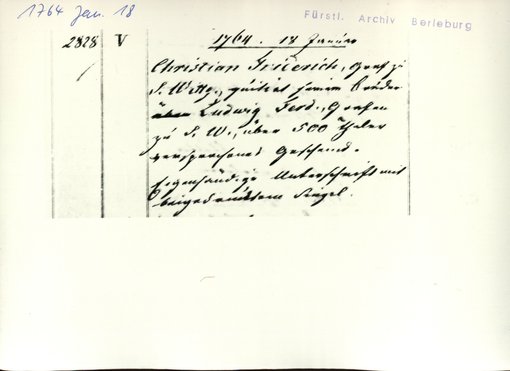 1764 Jan. 18
Fürstl. Archiv Berleburg
2828 V 1764. 18 Januar
Christian Friderich, Graf zu
S. W. Ttg., quitirt seinem Bruder
über Ludwig Ferd., Grafen
zu S. W., über 500 Thaler
versprochenes Geschenk.
Eigenhändige Unterschrift mit
beigedrucktem Siegel.